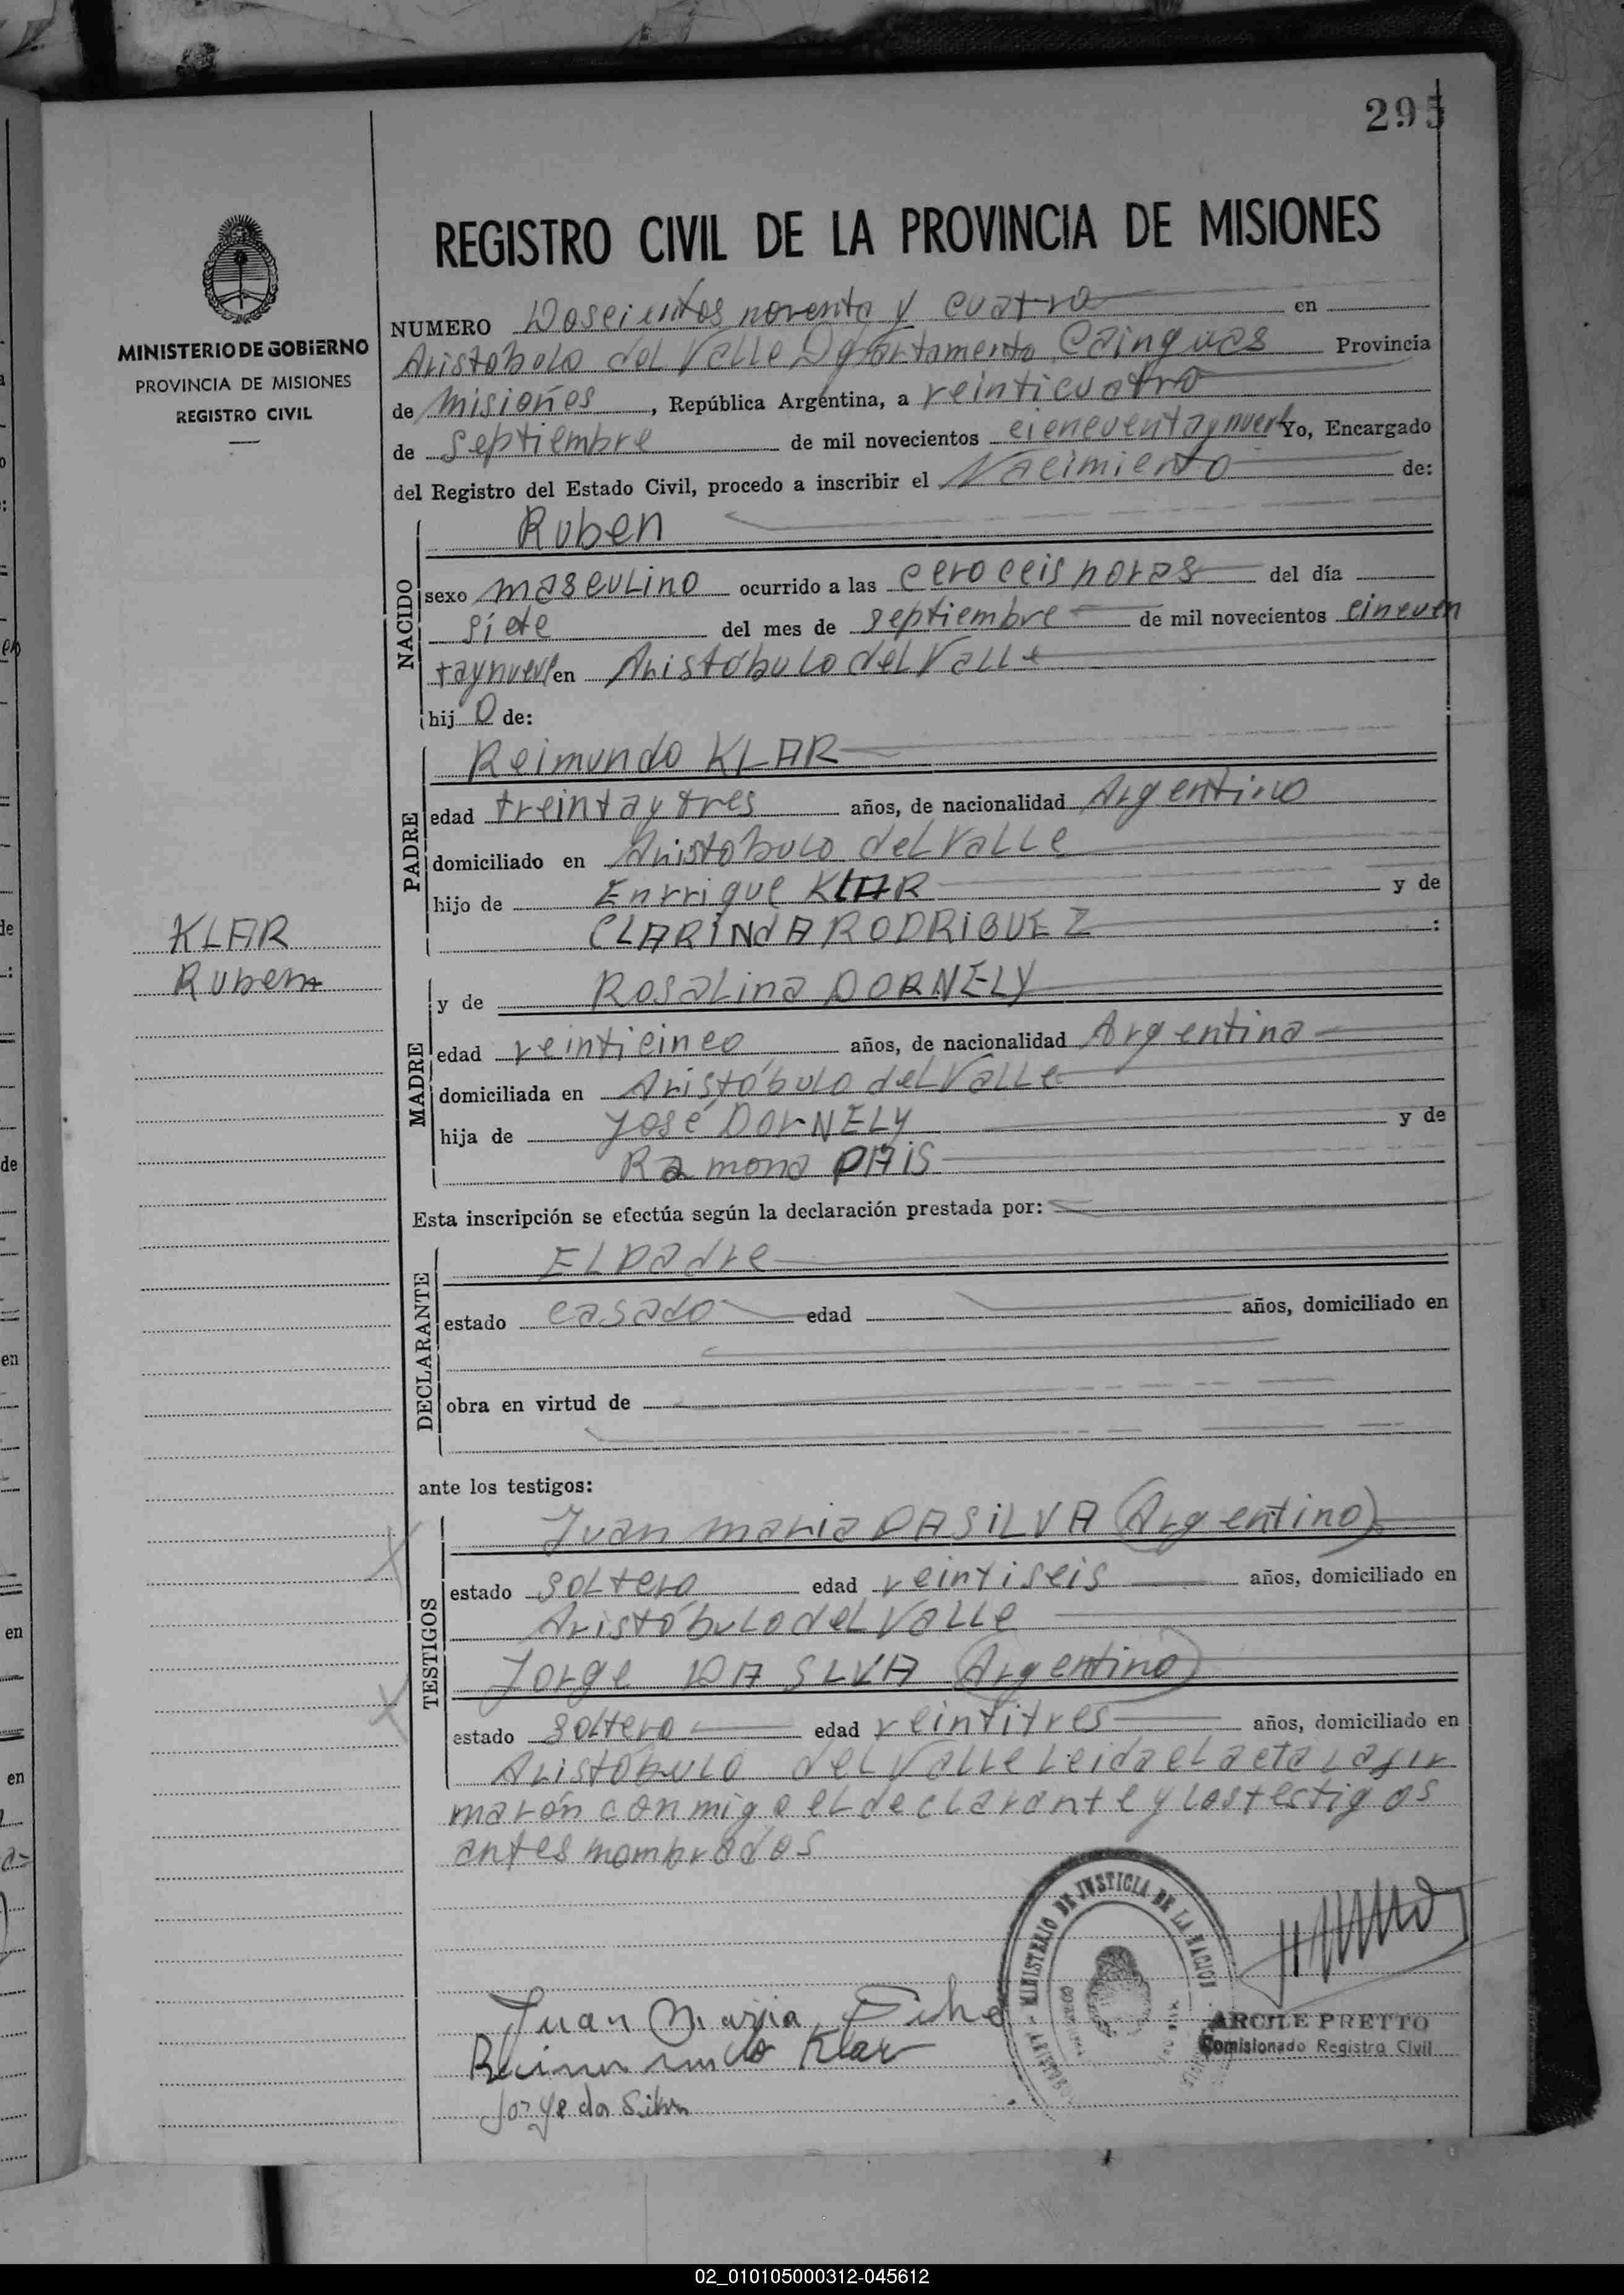 295
REGISTRO CIVIL DE LA PROVINCIA DE MISIONES
MINISTERIO DE GOBIERNO
PROVINCIA DE MISIONES
REGISTRO CIVIL
NUMERO Doscientos noventa y cuatro en
Aristobulo del Valle Departamento Cainguas Provincia
de Misiones, República Argentina, a veinticuatro
de septiembre de mil novecientos cincuentaynueve Yo, Encargado
del Registro del Estado Civil, procedo a inscribir el Nacimiento de:
NACIDO
Ruben
sexo masculino ocurrido a las cero ceis horas del día
siete del mes de septiembre de mil novecientos cincuen
taynueve en Aristóbulo del Valle
hij o de:
PADRE
Reimundo KLAR
edad treintaytres años, de nacionalidad Argentino
domiciliado en Aristobulo del Valle
hijo de Enrrique KLAR y de
CLARINdA RODRIGUEZ :
KLAR
Ruben
MADRE
y de Rosalina DORNELY
edad veinticinco años, de nacionalidad Argentina
domiciliada en Aristóbulo del Valle
hija de José DORNELY y de
Ramona PAIS
Esta inscripción se efectúa según la declaración prestada por:
DECLARANTE
El padre
estado casado edad años, domiciliado en
obra en virtud de
ante los testigos:
TESTIGOS
Juan maria DA SILVA (Argentino)
estado soltero edad veintiseis años, domiciliado en
Aristóbulo del Valle
Jorge DA SLVA (Argentino)
estado soltero edad veintitres años, domiciliado en
Aristóbulo del Valle Leida el acta la fir
marón conmigo el declarante y los testigos
antes nombrados
MINISTERIO DE JUSTICIA DE LA NACION
Juan Maria
Klar
Jorge da Silva
ARCILE PRETTO
Comisionado Registro Civil
02_010105000312-045612